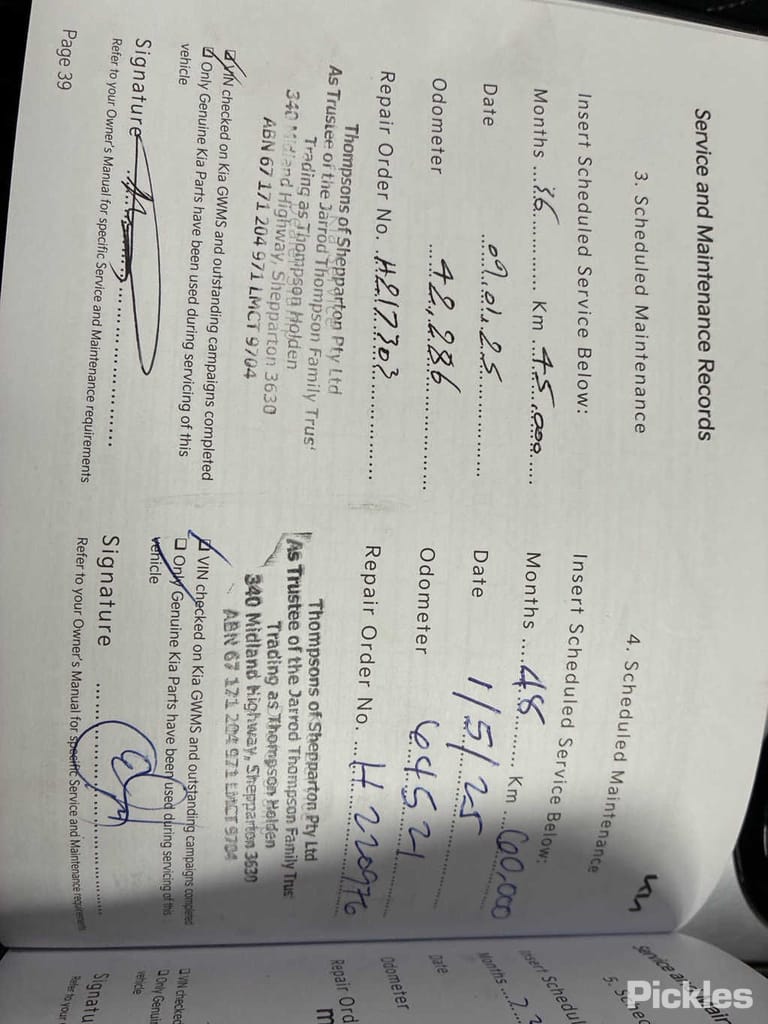 Service and Maintenance Records
3. Scheduled Maintenance
Insert Scheduled Service Below:
Months ...36............. Km ...45,000.....
Date .....09.01.25................
Odometer ......42,286................
Repair Order No. ..H217303................
Thompsons of Shepparton Pty Ltd
As Trustee of the Jarrod Thompson Family Trus'
Trading as Thompson Holden
340 Midland Highway, Shepparton 3630
ABN 67 171 204 971 LMCT 9704
VIN checked on Kia GWMS and outstanding campaigns completed
Only Genuine Kia Parts have been used during servicing of this
vehicle
Signature
Refer to your Owner's Manual for specific Service and Maintenance requirements
Page 39
4. Scheduled Maintenance
Insert Scheduled Service Below:
Months ....48.......... Km ....60,000
Date 1/5/25
Odometer 64521
Repair Order No. ...H220976
Thompsons of Shepparton Pty Ltd
As Trustee of the Jarrod Thompson Family Trus'
Trading as Thompson Holden
340 Midland Highway, Shepparton 3630
ABN 67 171 204 971 LMCT 9704
VIN checked on Kia GWMS and outstanding campaigns completed
Only Genuine Kia Parts have been used during servicing of this
vehicle
Signature
Refer to your Owner's Manual for specific Service and Maintenance requirements
Service and
5. Sched
Insert Schedul
Months
Date
Odometer
Repair Ord
VIN checked
Only Genuin
vehicle
Signatu
Refer to your
Pickles